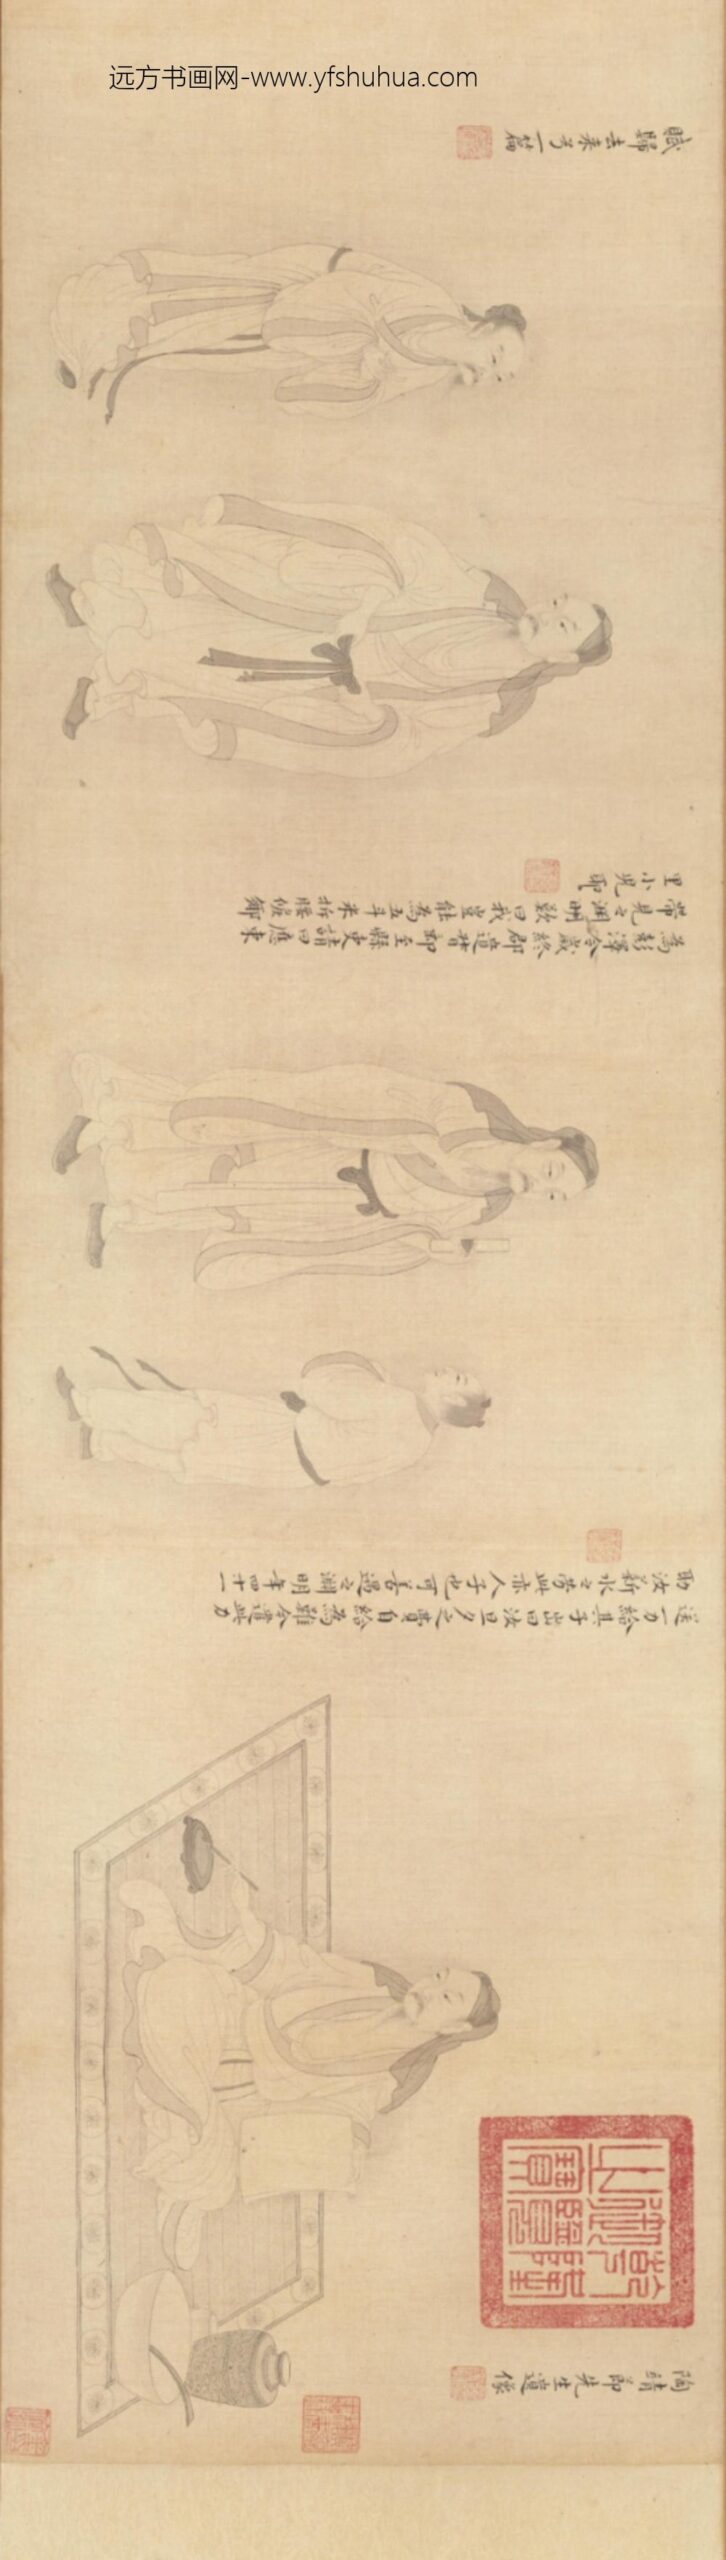 远方书画网-www.yfshuhua.com
陶靖節先生遺像
送一力給其子書曰汝旦夕之費自給為難今遣此力
助汝薪水之勞此亦人子也可善遇之淵明年四十一
為彭澤令歲終郡遣督郵至縣吏請曰應束
帶見之淵明歎曰我豈能為五斗米折腰鄉
里小兒耶
賦歸去來兮一篇